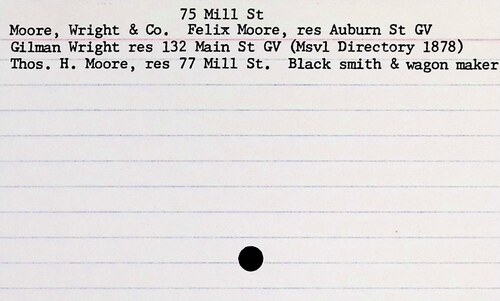 75 Mill St
Moore, Wright & Co. Felix Moore, res Auburn St GV
Gilman Wright res 132 Main St GV (Msvl Directory 1878)
Thos. H. Moore, res 77 Mill St. Black smith & wagon maker